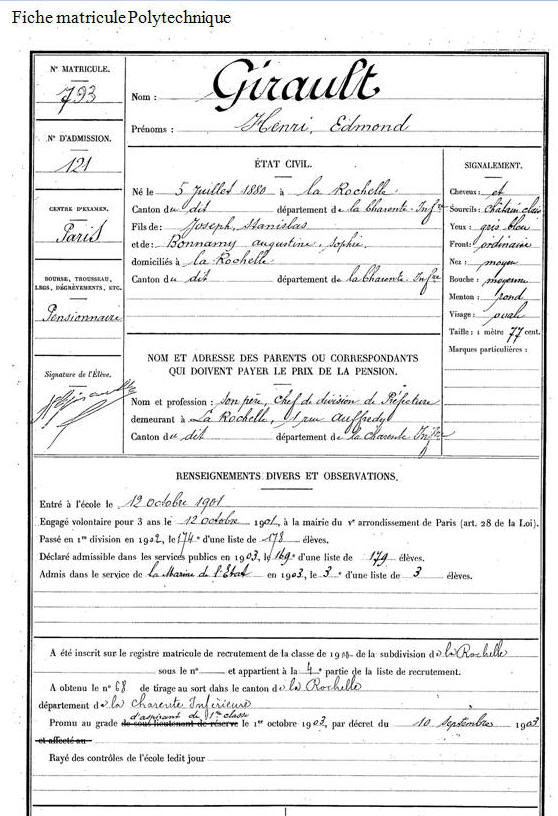 Fiche matricule Polytechnique
N° MATRICULE.
793
N° D'ADMISSION.
121
CENTRE D'EXAMEN.
Paris
BOURSE, TROUSSEAU,
LEGS, DÉGRÈVEMENTS, ETC.
Pensionnaire
Signature de l'Élève.
Nom : Girault
Prénoms : Henri, Edmond
ÉTAT CIVIL.
Né le 5 Juillet 1880 à la Rochelle
Canton du dit département de la Charente-Infre
Fils de : Joseph, Stanislas
et de : Bonnamy augustine, Sophie
domiciliés à la Rochelle
Canton du dit département de la Charente Infre
SIGNALEMENT.
Cheveux : et
Sourcils : châtain clair
Yeux : gris bleu
Front : ordinaire
Nez : moyen
Bouche : moyenne
Menton : rond
Visage : ovale
Taille : 1 mètre 77 cent.
Marques particulières :
NOM ET ADRESSE DES PARENTS OU CORRESPONDANTS
QUI DOIVENT PAYER LE PRIX DE LA PENSION.
Nom et profession : son père, Chef de division de Préfecture
demeurant à La Rochelle, 1 rue Auffredy
Canton du dit département de la Charente Infre
RENSEIGNEMENTS DIVERS ET OBSERVATIONS.
Entré à l'école le 12 octobre 1901
Engagé volontaire pour 3 ans le 12 octobre 1901, à la mairie du Ve arrondissement de Paris (art. 28 de la Loi).
Passé en 1re division en 1902, le 174e d'une liste de 178 élèves.
Déclaré admissible dans les services publics en 1903, le 169e d'une liste de 179 élèves.
Admis dans le service de la Marine de l'Etat en 1903, le 3e d'une liste de 3 élèves.
A été inscrit sur le registre matricule de recrutement de la classe de 1900 de la subdivision de la Rochelle
sous le n° et appartient à la 4e partie de la liste de recrutement.
A obtenu le n° 68 de tirage au sort dans le canton de la Rochelle
département de la Charente Inférieure
d'aspirant de 1re classe
Promu au grade de sous-lieutenant de réserve le 1er octobre 1903, par décret du 10 Septembre 1903
et affecté au
Rayé des contrôles de l'école ledit jour